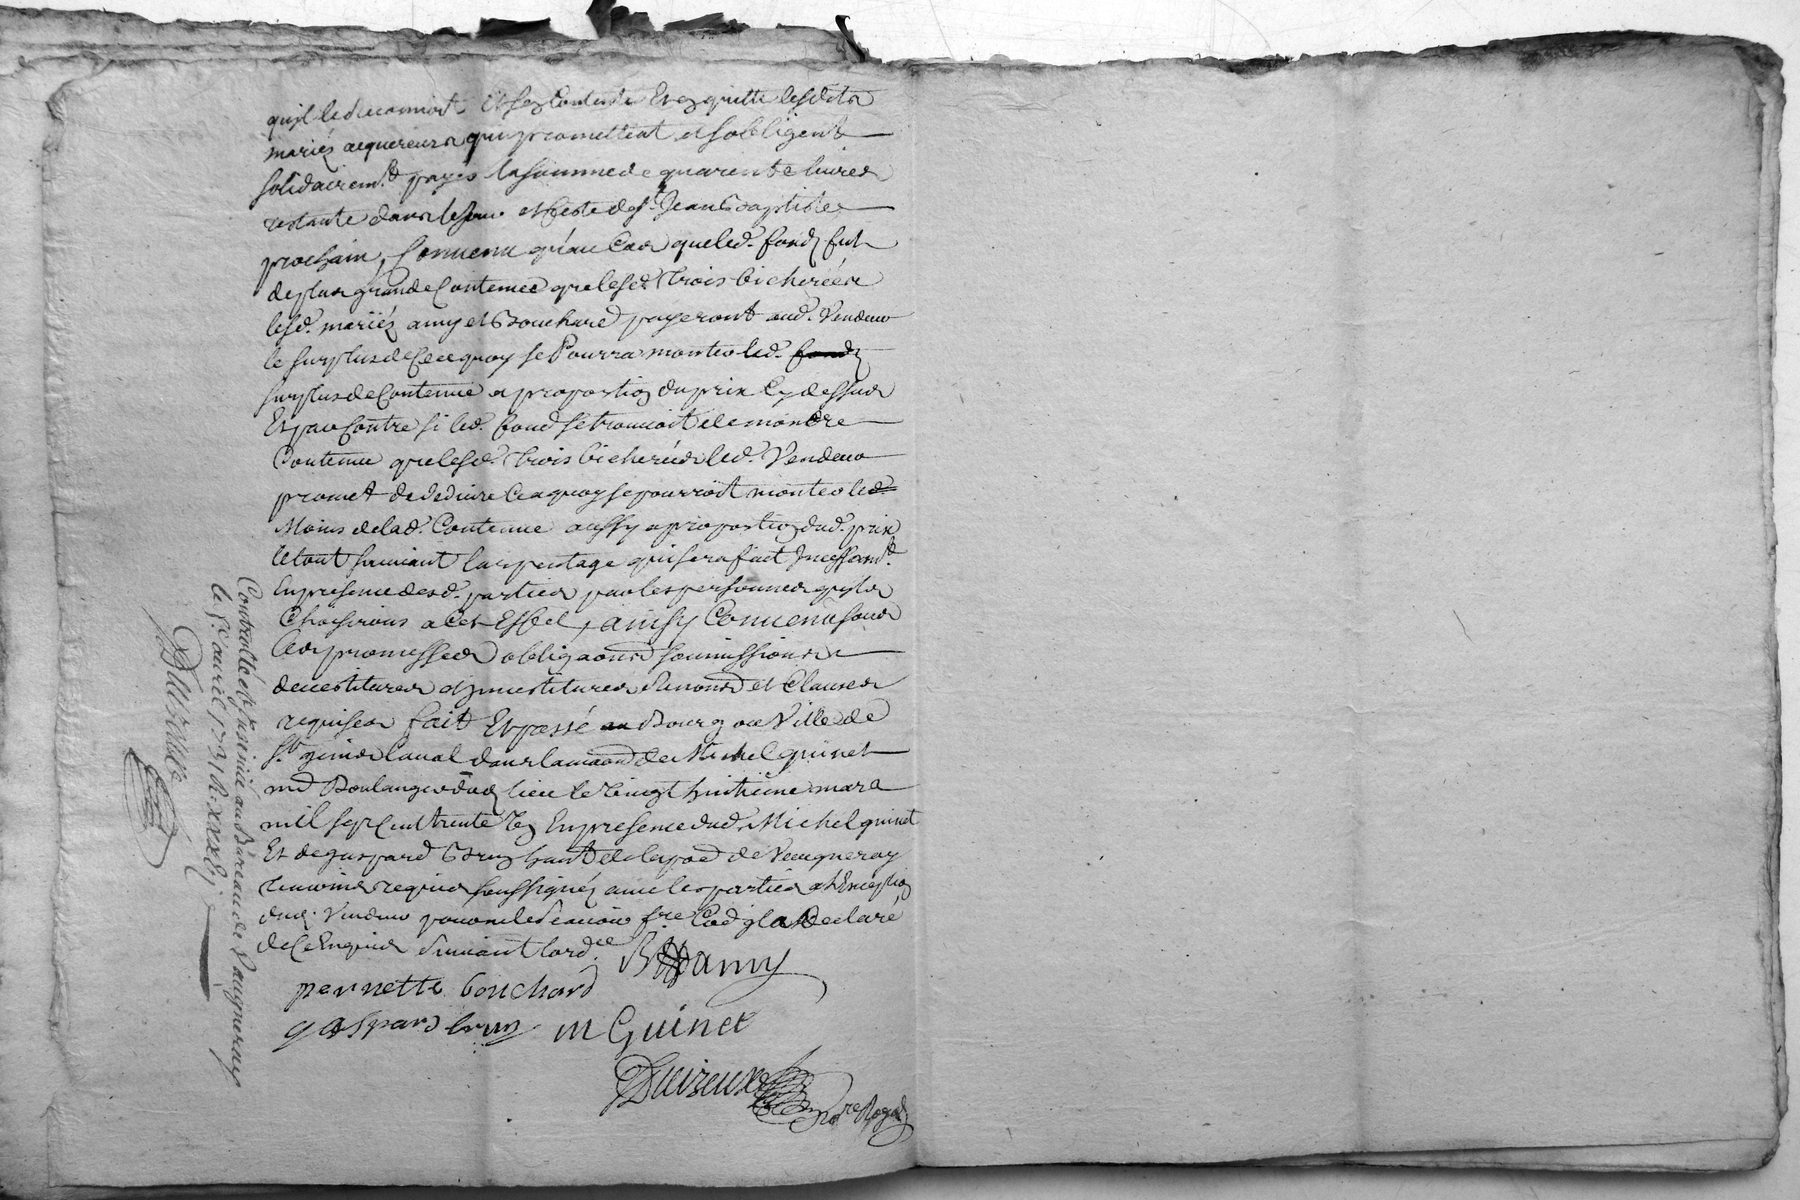 qu'il le Reconnoit Et sen Contente Et en quitte lesdits
mariez acquereurs qui promettent et sobligent
solidairemt. payer la somme de quarente livres
restante dans le jour et feste de st. Jean Baptiste
prochain, Convenu qu'au Cas que led. fond fut
de plus grande Contenue que lesd. trois bicherées
lesd. mariéz amy et Bouchard payeront aud. Vendeur
le surplus de Ce a quoy se Pourra monter led.
surplus de Contenue a proportion du prix Cy dessus
Et par Contre si led. fond se trouvoit de moindre
Contenue que lesd. trois bicherées led. Vendeur
promet de deduire Ce a quoy se pourroit monter le
Moins de lad. Contenue aussy a proportion dud. prix
le tout suivant larpentage qui sera fait Incessamt.
En presence desd. parties par les personnes quils
Choisirons a Cet Effet, ainsy Convenu sous
les promesses obligaons soumissions
devestitures et investitures Renons et Clauses
requises fait Et passé Bourg ou Ville de
St. genis Laval dans la maison de Michel guinet
md Boulanger dud lieu le vingt huitieme mars
mil sept Cent trente Un En presence dud. Michel guinet
Et de gaspard Brun de la parr de Vaugneray
temoins requis soussignéz avec les parties a l'Exception
dud. Vendeur pour ne le scavoir fre. Ce qu'il a Declaré
de Ce Enquis suivant lordce.
B amy
pernette bouchard
gaspard brun m Guinet
Duizeux Nore Royal
Controllé et Insinué au Bureau de Vaugneray
le avril 1731 R.